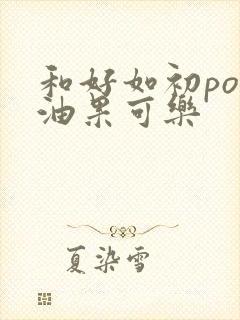 和好如初po
油果可樂
夏染雪